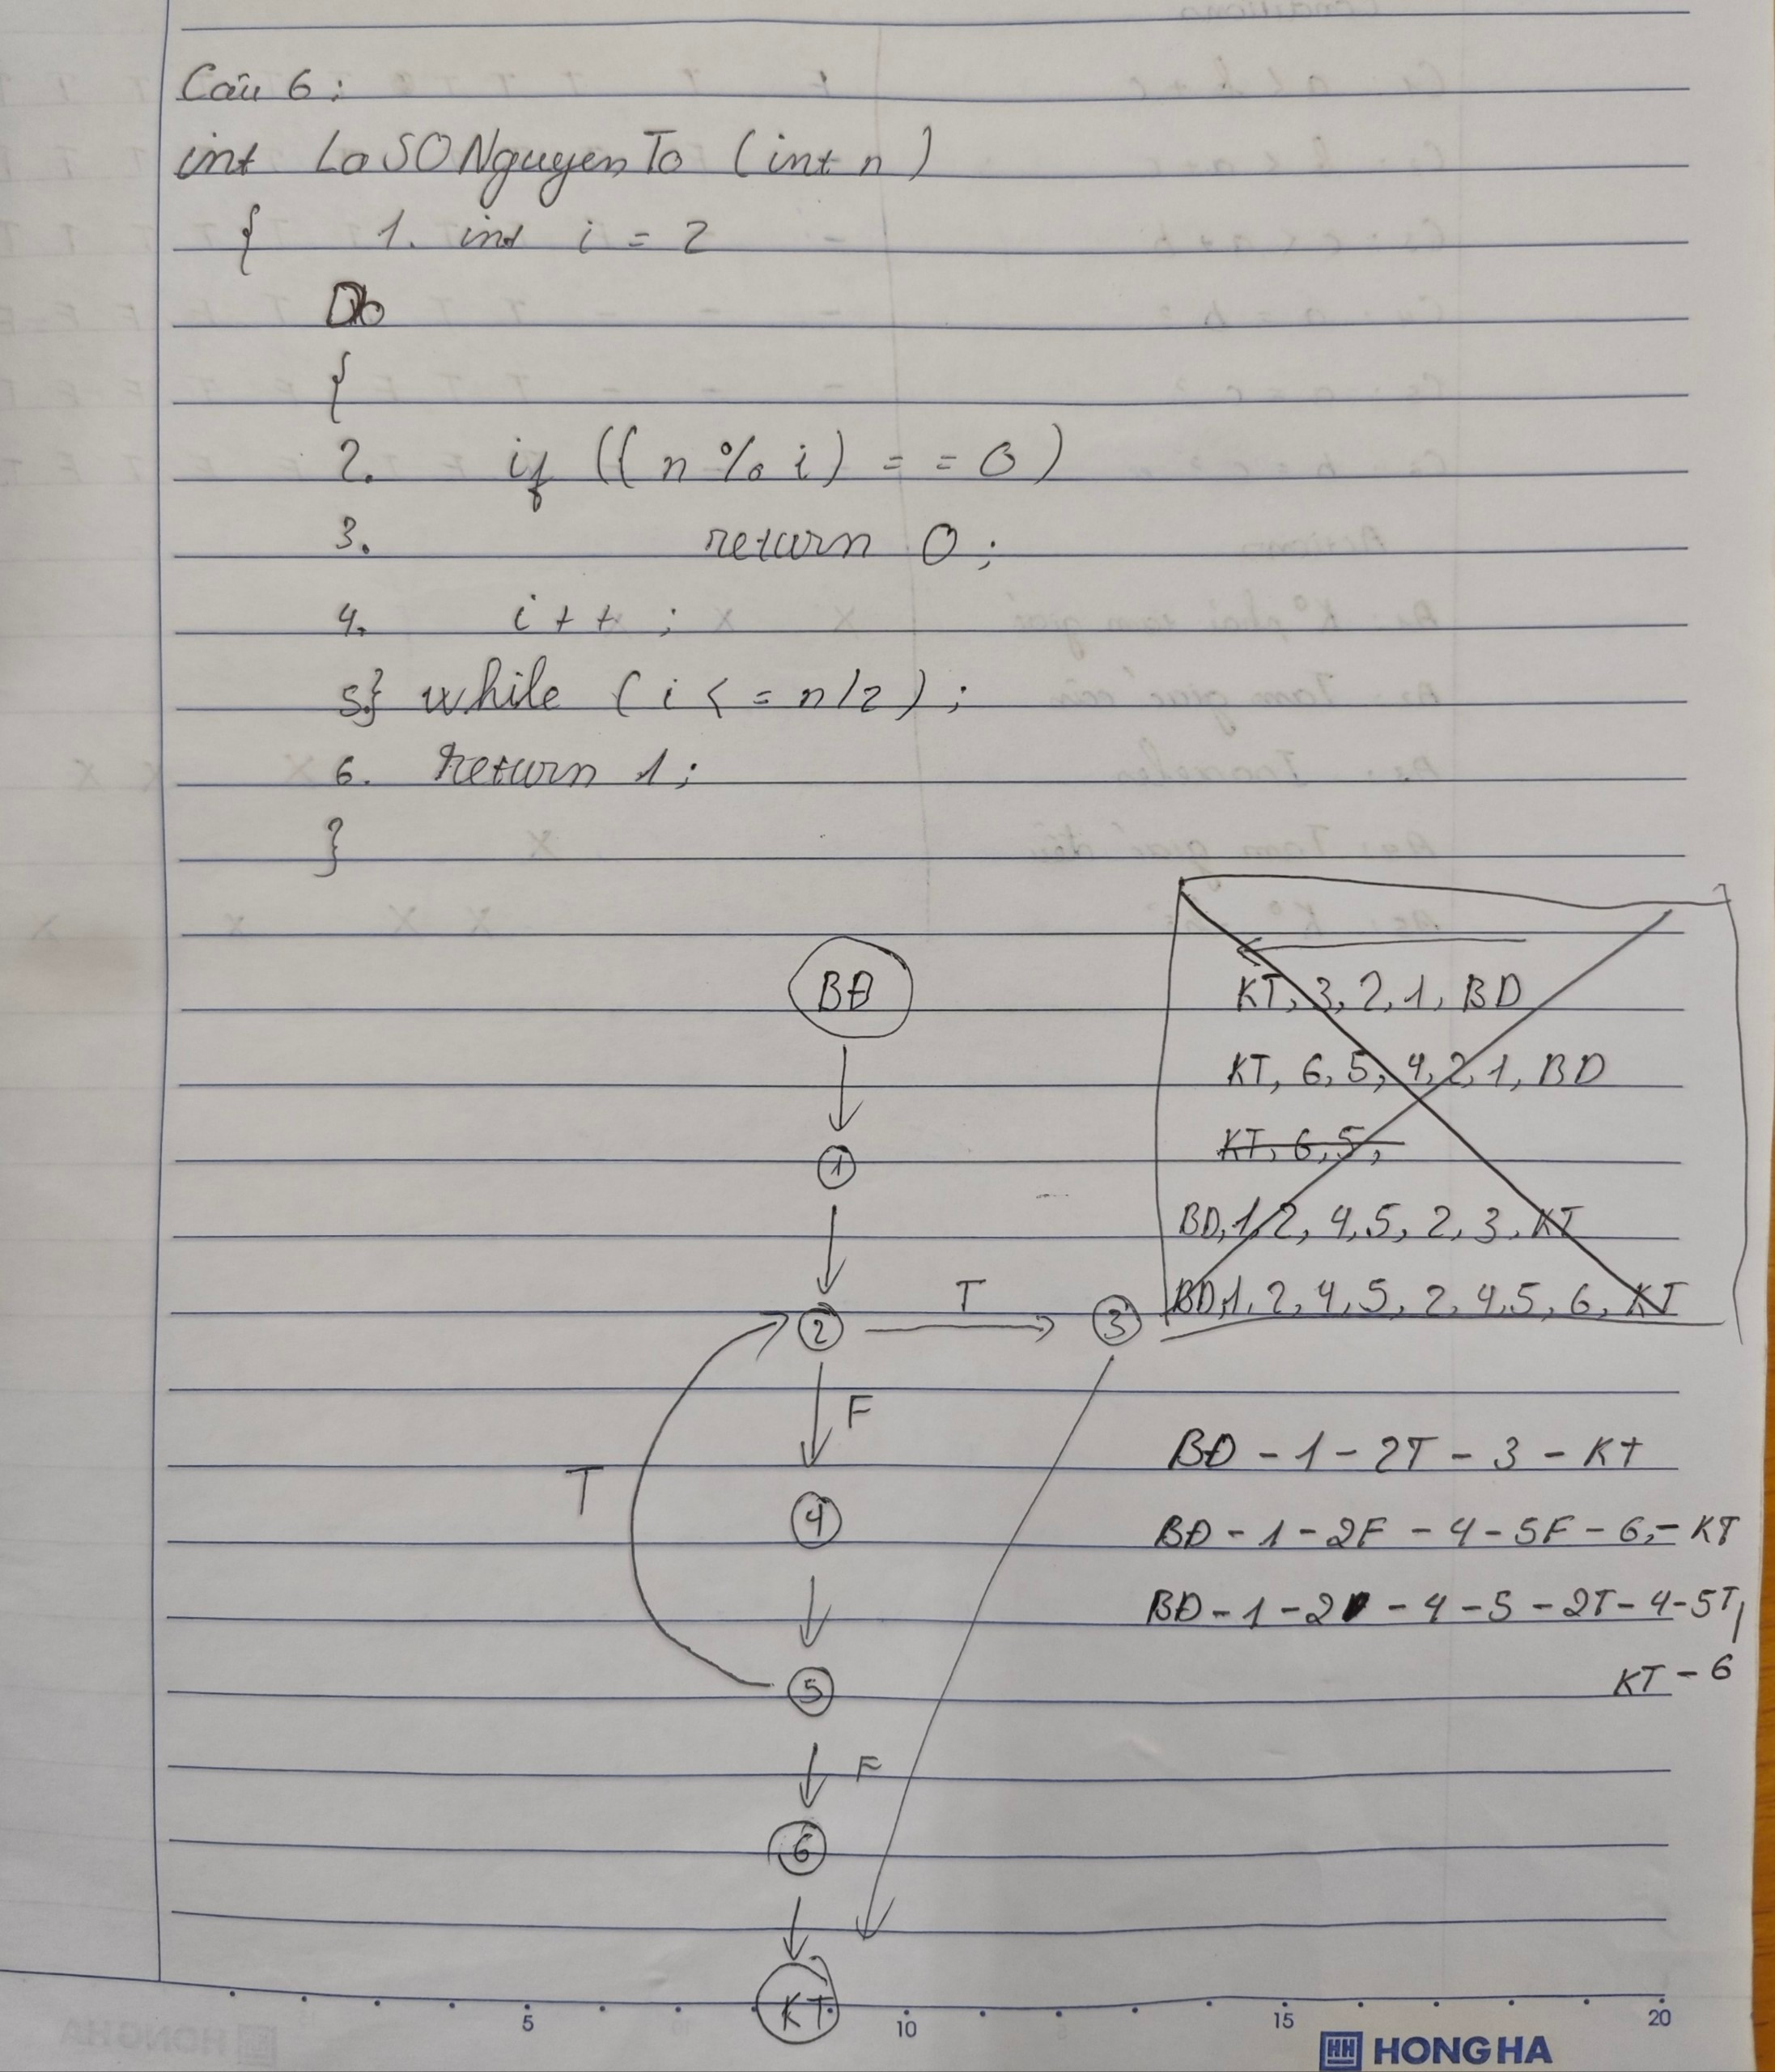 Câu 6:
int LaSONguyenTo (int n)
{ 1. int i = 2
Do
{
2. if ((n % i) = = 0)
3. return 0;
4. i++;
5} while (i <= n/2);
6. return 1;
}
BĐ
KT, 3, 2, 1, BD
KT, 6, 5, 4, 2, 1, BD
KT, 6, 5,
1
BD, 1, 2, 4, 5, 2, 3, KT
BD, 1, 2, 4, 5, 2, 4, 5, 6, KT
2 T 3
F
T
BĐ - 1 - 2T - 3 - KT
4
BĐ - 1 - 2F - 4 - 5F - 6, - KT
BĐ - 1 - 2 - 4 - 5 - 2T - 4 - 5T
KT - 6
5
F
6
KT
5 10 15 20
HH HONG HA